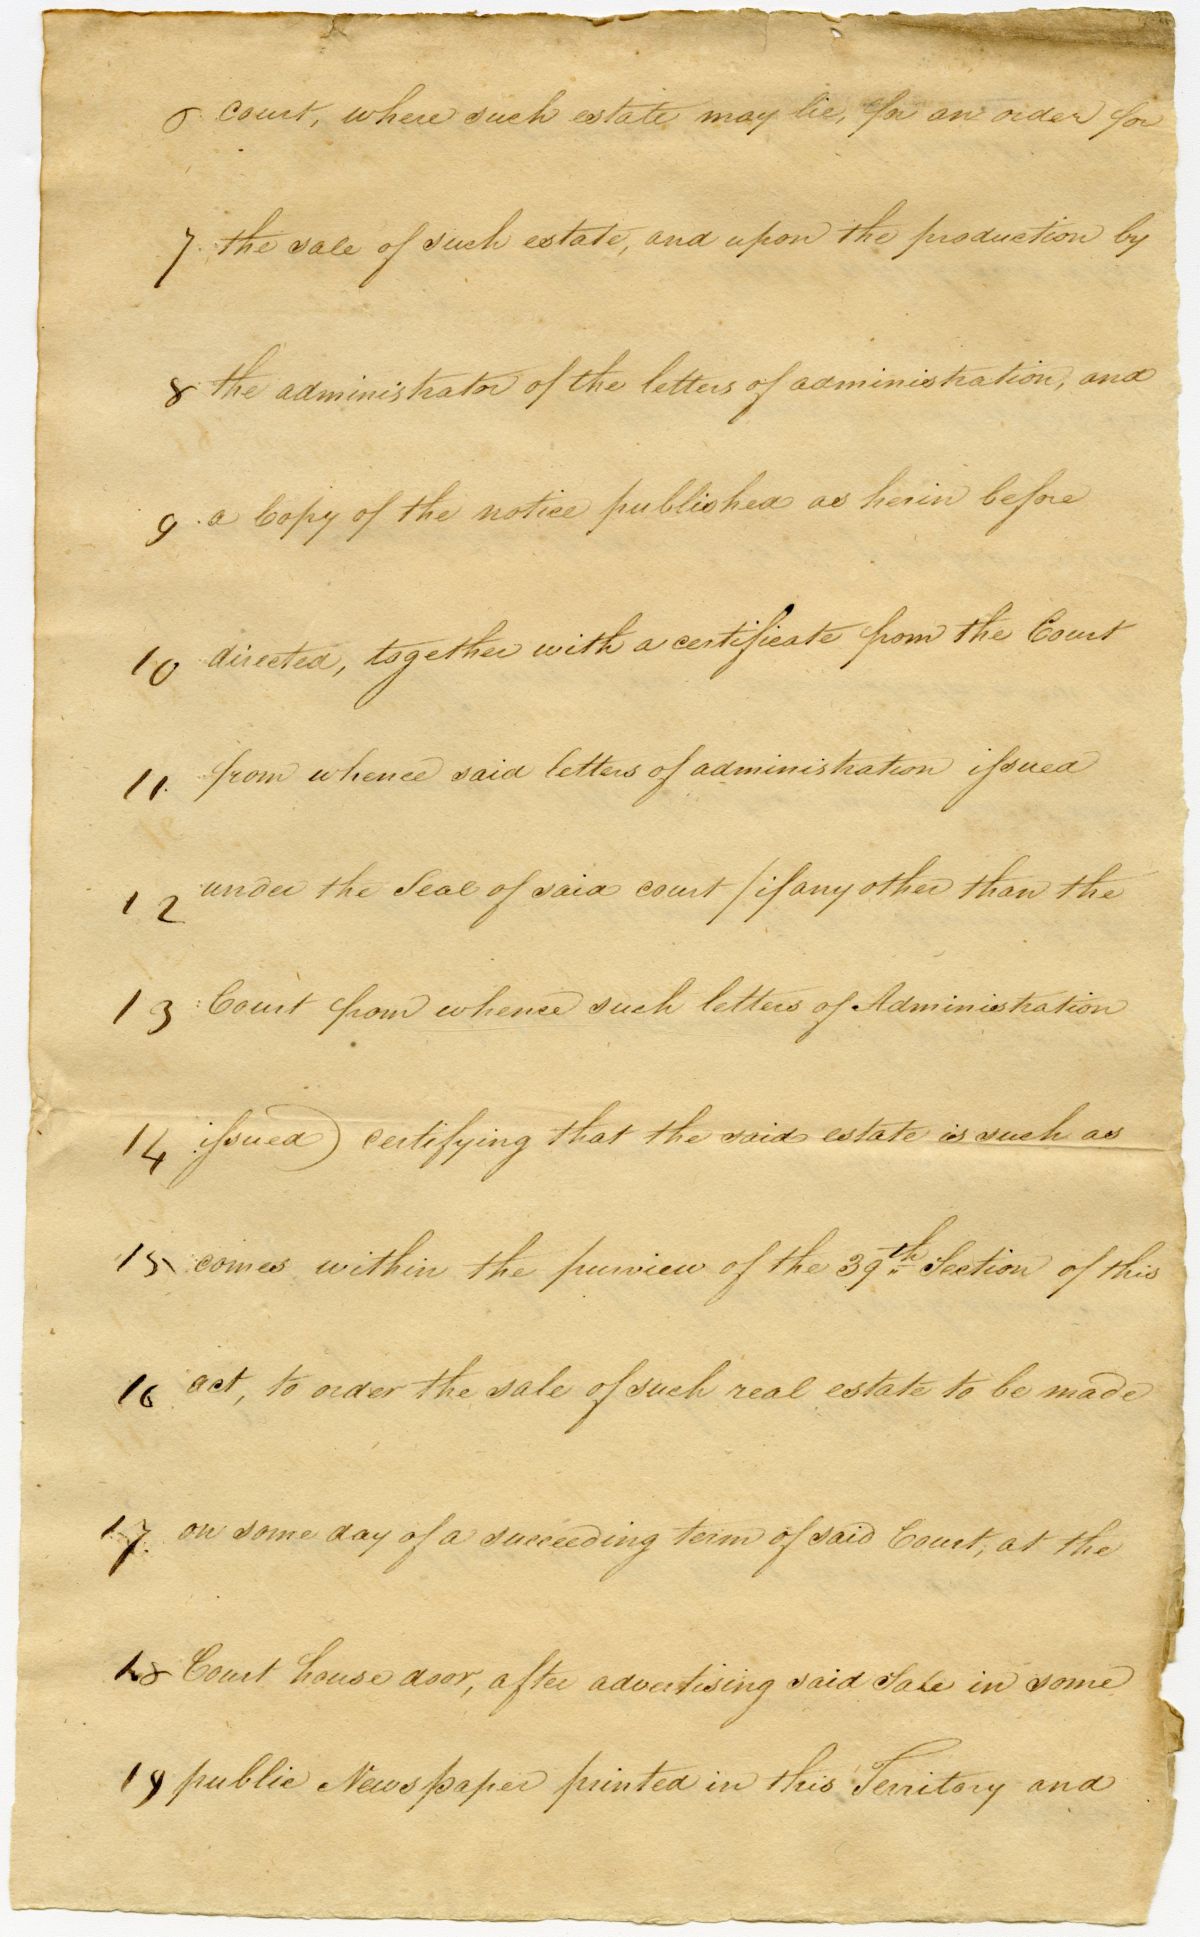 6 court, where such estate may lie, for an order for
7. the sale of such estate, and upon the production by
8 the administrator of the letters of administration, and
9 a Copy of the notice published as herin before
10 directed, together with a certificate from the Court
11. from whence said letters of administration issued
12 under the Seal of said court / if any other than the
13 Court from whence such letters of Administration
14 issued) certifying that the said estate is such as
15 comes within the purview of the 39th Section of this
16 act, to order the sale of such real estate to be made
17. on some day of a succeeding term of said Court, at the
18 Court house door, after advertising said Sale in some
19 public Newspaper printed in this Territory and